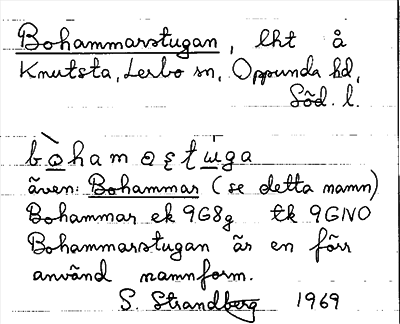 Bohammarstugan, lht å
Knutsta, Lerbo sn, Oppunda hd,
Söd. l.
bòhamaʂtu̇ga
även: Bohammar (se detta namn)
Bohammar ek 9G8g tk 9GNO
Bohammarstugan är en förr
använd namnform.
S. Strandberg 1969